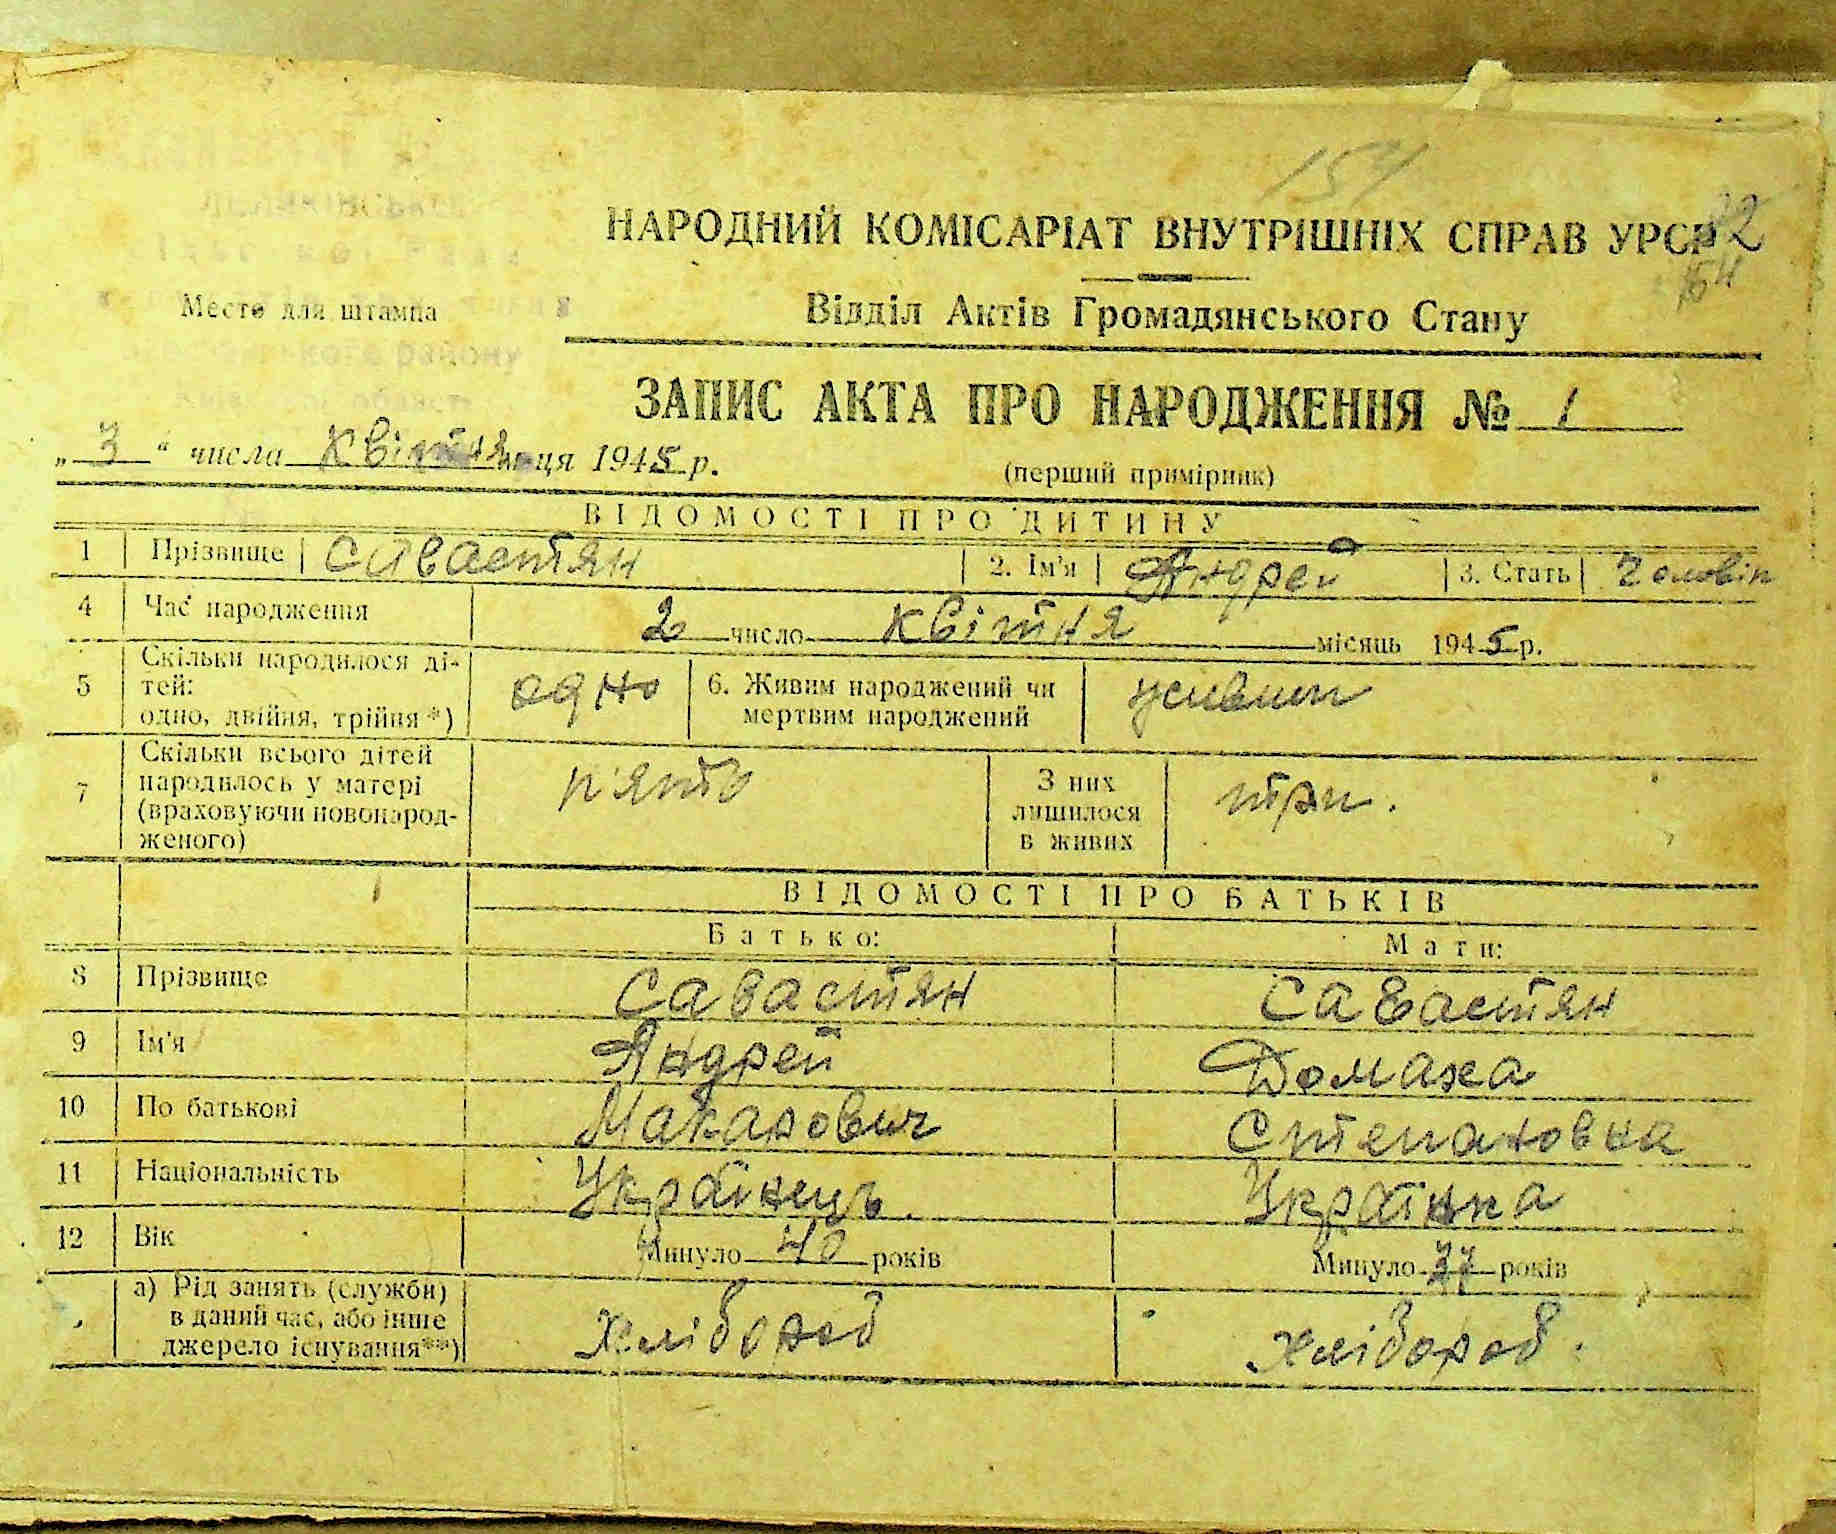 154
НАРОДНИЙ КОМІСАРІАТ ВНУТРІШНІХ СПРАВ УРСР
Место для штампа
Відділ Актів Громадянського Стану
району
ЗАПИС АКТА ПРО НАРОДЖЕННЯ № 1
„3“ числа Квітня ця 1945 р.
(перший примірник)
ВІДОМОСТІ ПРО ДИТИНУ
1 Прізвище Савастян 2. Ім'я Андрей 3. Стать Чоловіч
4 Час народження 2 число квітня місяць 1945 р.
5 Скільки народилося ді-
тей:
одно, двійня, трійня*) одно 6. Живим народжений чи
мертвим народжений живим
7 Скільки всього дітей
народилось у матері
(враховуючи новонарод-
женого) п'ято З них
лишилося
в живих три.
ВІДОМОСТІ ПРО БАТЬКІВ
Батько: Мати:
8 Прізвище Савастян Савастян
9 Ім'я Андрей Домаха
10 По батькові Макарович Степановна
11 Національність Українець. Українка
12 Вік Минуло 40 років Минуло 37 років
а) Рід занять (служби)
в даний час, або інше
джерело існування**) хлібороб хлібороб.